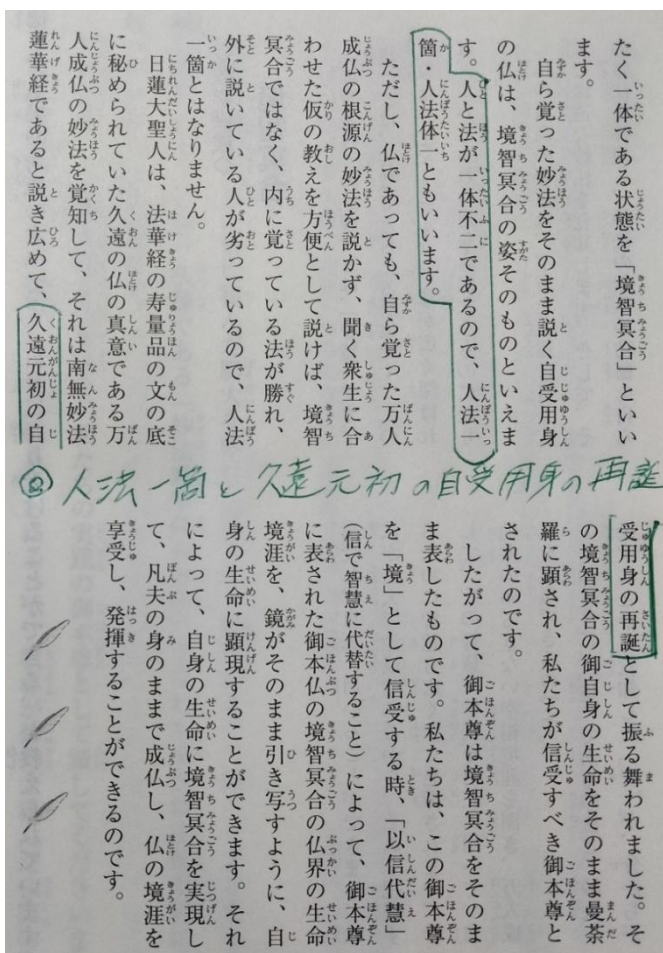 たく一体である状態を「境智冥合」といい
ます。
自ら覚った妙法をそのまま説く自受用身
の仏は、境智冥合の姿そのものといえま
す。人と法が一体不二であるので、人法一
箇・人法体一ともいいます。
ただし、仏であっても、自ら覚った万人
成仏の根源の妙法を説かず、聞く衆生に合
わせた仮の教えを方便として説けば、境智
冥合ではなく、内に覚っている法が勝れ、
外に説いている人が劣っているので、人法
一箇とはなりません。
日蓮大聖人は、法華経の寿量品の文の底
に秘められていた久遠の仏の真意である万
人成仏の妙法を覚知して、それは南無妙法
蓮華経であると説き広めて、久遠元初の自
⑧人法一箇と久遠元初の自受用身の再誕
受用身の再誕として振る舞われました。そ
の境智冥合の御自身の生命をそのまま曼荼
羅に顕され、私たちが信受すべき御本尊と
されたのです。
したがって、御本尊は境智冥合をそのま
ま表したものです。私たちは、この御本尊
を「境」として信受する時、「以信代慧」
(信で智慧に代替すること)によって、御本尊
に表された御本仏の境智冥合の仏界の生命
境涯を、鏡がそのまま引き写すように、自
身の生命に顕現することができます。それ
によって、自身の生命に境智冥合を実現し
て、凡夫の身のままで成仏し、仏の境涯を
享受し、発揮することができるのです。